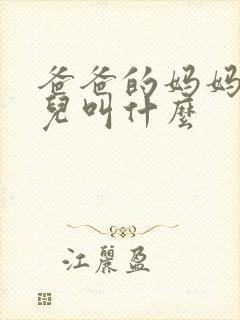 爸爸的妈妈
兒叫什麼
江麗盈